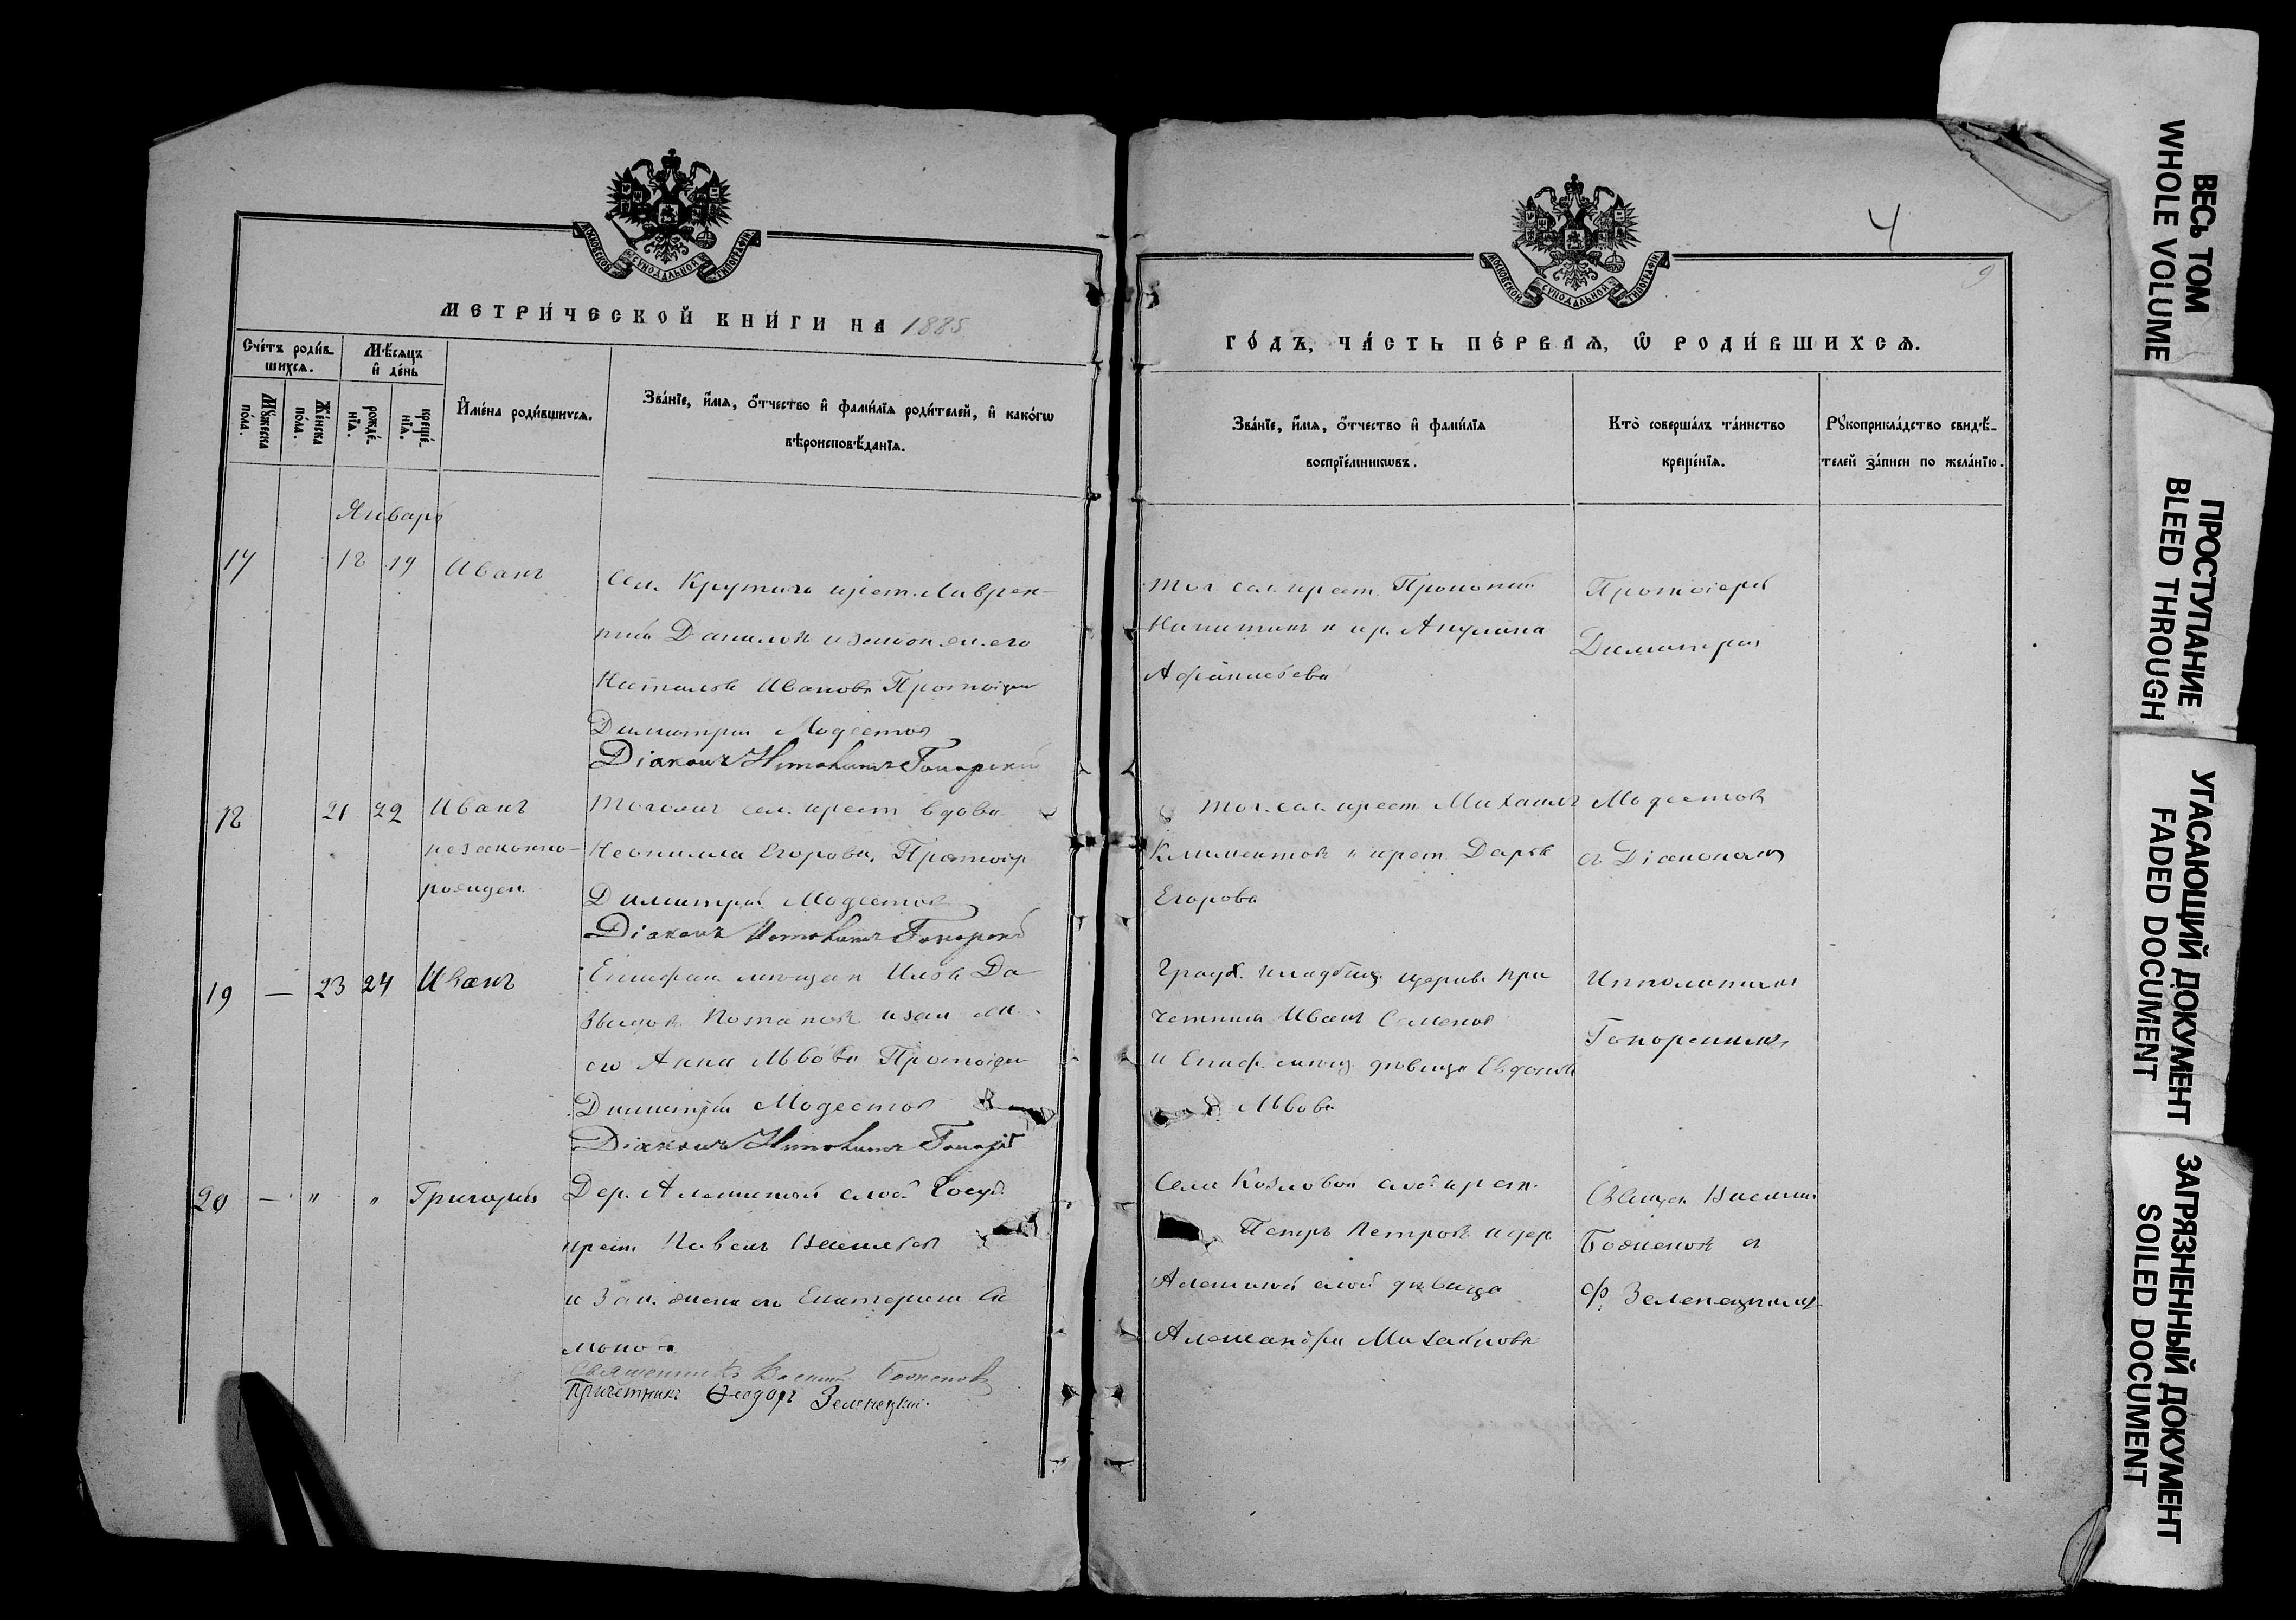 МОСКОВСКОЙ СУНОДАЛЬНОЙ ТИПОГРАФІИ
МЕТРИ́ЧЕСКОЙ КНИ́ГИ НА 1885
Сче́тъ роди́в-
шихсѧ.
Мѣ́сяцъ
и҆ де́нь
Мꙋ́жеска по́ла.
Же́нска по́ла.
рожде́-нїѧ.
креще́-нїѧ.
И҆мена̀ роди́вшихсѧ.
Зва́нїе, и҆́мѧ, ѻ҆́тчество и҆ фами́лїѧ роди́телей, и҆ како́гѡ
вѣроисповѣ́данїѧ.
Январь
17 18 19 Иванъ
Сел. Крутаго крест. Лаврен-
тій Данилов и закон. ж. его
Наталья Иванова Протоіерей
Димитрій Модестов
Діаконъ Ипполитъ Гонорскій
18 21 22 Иванъ
незаконно-
рожден
Тогоже сел. крест вдова
Неонилла Егорова, Протоіер
Димитрій Модестов
Діаконъ Ипполитъ Гонорскій
19 — 23 24 Иванъ
Епифан. мещан Илья Да-
выдов Потапов и зак ж.
его Анна Львова Протоіерей
Димитрій Модестов
Діаконъ Ипполитъ Гонорс
20 — " " Григорій
Дер. Алешкиной слоб. Госуд.
крест Павелъ Васильев
и Зак. жена его Екатерина Си
монова
Священникъ Василій Боженов
Причетникъ Ѳеодоръ Зеленецкій.
4
9
МОСКОВСКОЙ СУНОДАЛЬНОЙ ТИПОГРАФІИ
ГО́ДЪ, ЧА́СТЬ ПЕ́РВАѦ, Ѽ РОДИ́ВШИХСѦ.
Зва́нїе, и҆́мѧ, ѻ҆́тчество и҆ фами́лїѧ
воспрїе́мникѡвъ.
Кто̀ соверша́лъ та́инство
креще́нїѧ.
Рꙋкоприкла́дство свидѣ́-
телей за́писи по жела́нїю.
Тог. сел. крест. Прокопій
Никитинъ и кр. Акулина
Афанасьева
Протоіерей
Димитрій
Тог. сел. крест Михаилъ
Климентов и крест. Дарья
Егорова
Модестов
съ Діакономъ
Градс. кладбищ. церкви при
четникъ Иванъ Семенов
и Епиф. мещ. девица Евдокія
Львова
Ипполитомъ
Гонорскимъ
Села Козловой слоб крест.
Петръ Петров и дер.
Алешкиной слоб девица
Александра Михайлова
Священ Василій
Боженов съ
Ф. Зеленецкимъ
ВЕСЬ ТОМ
WHOLE VOLUME
ПРОСТУПАНИЕ
BLED THROUGH
УГАСАЮЩИЙ ДОКУМЕНТ
FADED DOCUMENT
ЗАГРЯЗНЕННЫЙ ДОКУМЕНТ
SOILED DOCUMENT